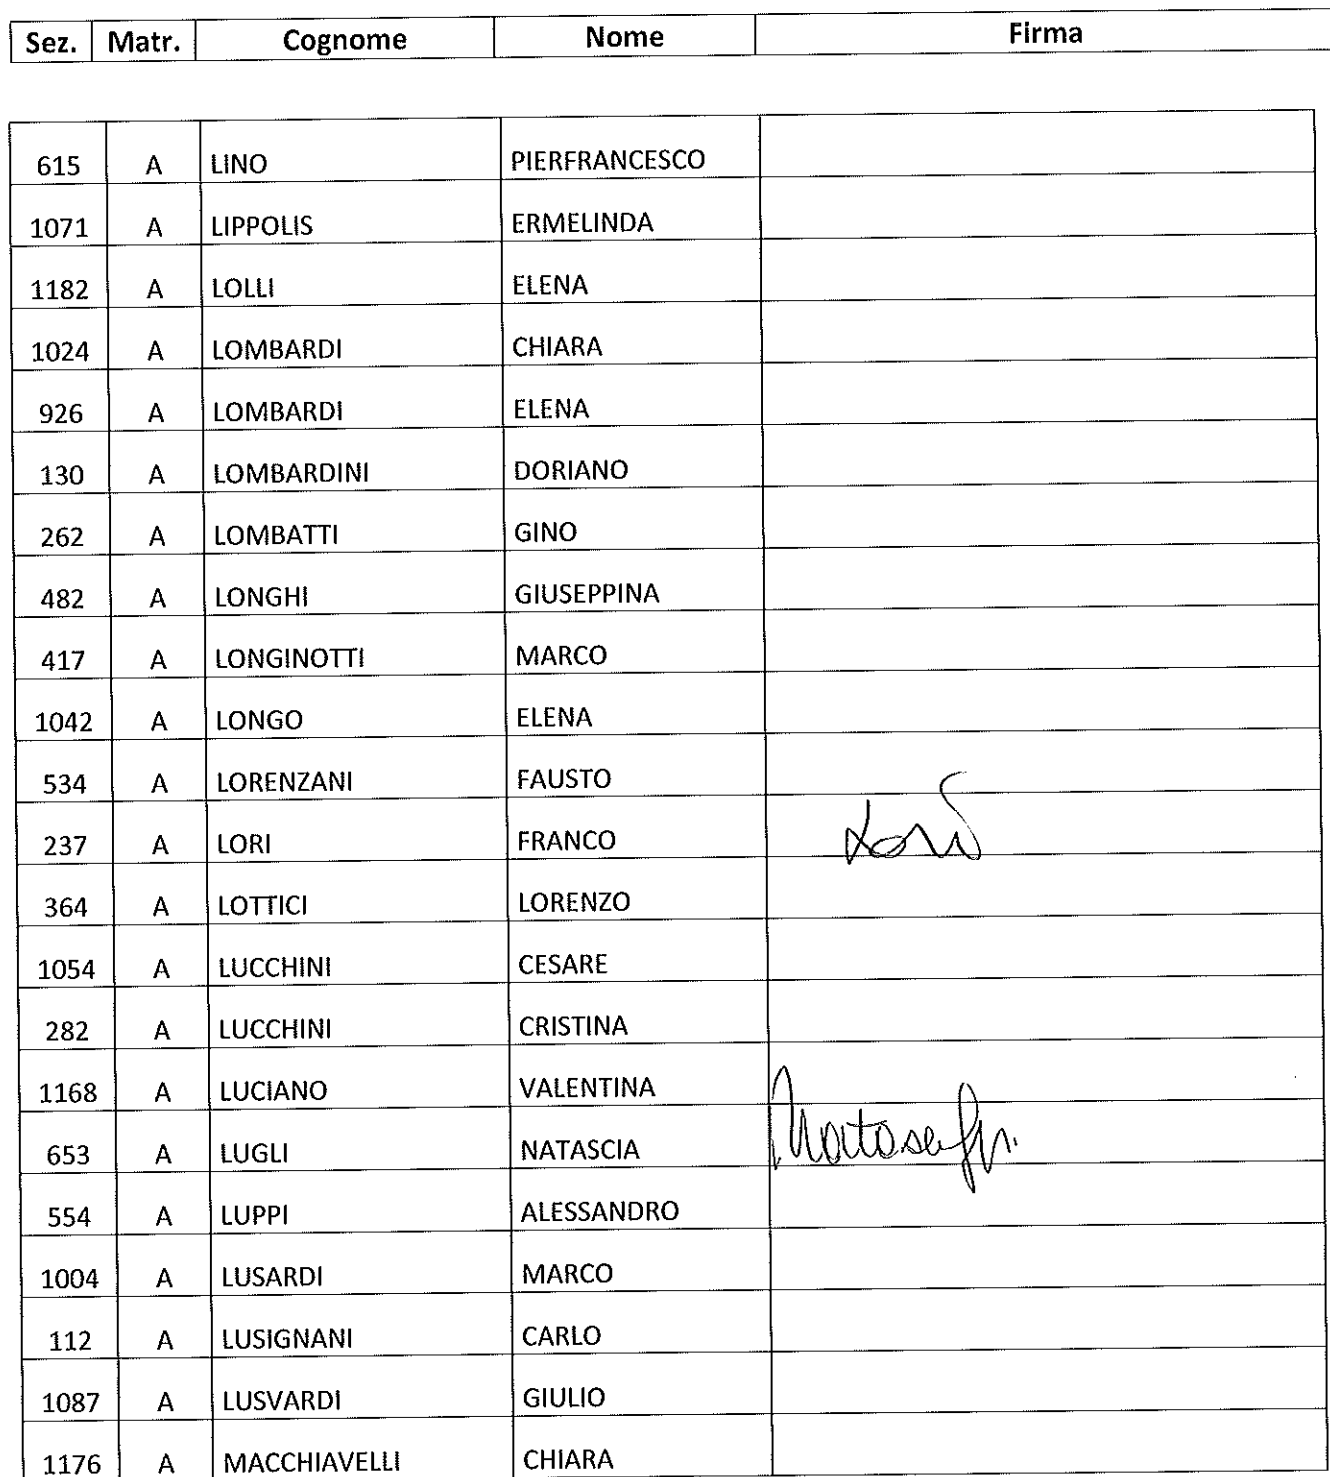 Sez. Matr. Cognome Nome Firma
615 A LINO PIERFRANCESCO
1071 A LIPPOLIS ERMELINDA
1182 A LOLLI ELENA
1024 A LOMBARDI CHIARA
926 A LOMBARDI ELENA
130 A LOMBARDINI DORIANO
262 A LOMBATTI GINO
482 A LONGHI GIUSEPPINA
417 A LONGINOTTI MARCO
1042 A LONGO ELENA
534 A LORENZANI FAUSTO
237 A LORI FRANCO Lori
364 A LOTTICI LORENZO
1054 A LUCCHINI CESARE
282 A LUCCHINI CRISTINA
1168 A LUCIANO VALENTINA
653 A LUGLI NATASCIA
554 A LUPPI ALESSANDRO
1004 A LUSARDI MARCO
112 A LUSIGNANI CARLO
1087 A LUSVARDI GIULIO
1176 A MACCHIAVELLI CHIARA